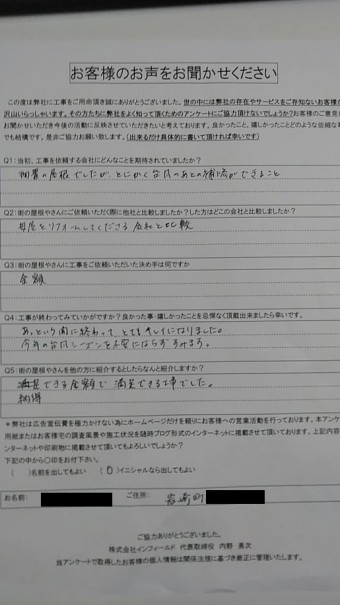 お客様のお声をお聞かせください
この度は弊社に工事をご用命頂き誠にありがとうございました。世の中には弊社の存在やサービスをご存知ないお客様が
沢山いらっしゃいます。その方たちに弊社をよく知って頂くためのアンケートにご協力頂けないでしょうか?お客様のご意見
お聞かせいただき今後の活動に反映させていただきたいと考えております。良かったこと、嬉しかったことどのような些細な
でも結構です。是非ご協力お願い致します。(出来るだけ具体的に書いて頂ければ幸いです)
Q1:当初、工事を依頼する会社にどんなことを期待されていましたか?
物置の屋根でしたが、とにかく台風のあとの補修ができること
Q2:街の屋根やさんにご依頼いただく際に他社と比較しましたか?した方はどこの会社と比較しましたか?
母屋をリフォームしてくださる会社と比較
Q3:街の屋根やさんに工事をご依頼いただいた決め手は何ですか
金額
Q4:工事が終わってみていかがですか?良かった事・嬉しかったことを忌憚なく頂戴出来ましたら幸いです。
あっという間に終わって、とてもキレイになりました。
今年の台風シーズンを不安にならずすみます。
Q5:街の屋根やさんを他の方に紹介するとしたらなんと紹介しますか?
満足できる金額で満足できる工事でした。
納得
*弊社は広告宣伝費を極力かけない為にホームページだけを頼りにお客様への営業活動を行っております。本アンケ
用紙またはお客様宅の調査風景や施工状況を随時ブログ形式のインターネットに掲載させて頂いております。上記内容
ンターネットや印刷物に掲載させて頂いてもよろしいでしょうか?
下記の中から〇印をお付下さい。
( )名前を出してもよい (O)イニシャルなら出してもよい
お名前: ご住所:
ご協力ありがとうございました。
株式会社インフィールド 代表取締役 内野 勇次
当アンケートで取得したお客様の個人情報は関係法規に基づき厳正に管理いたします。